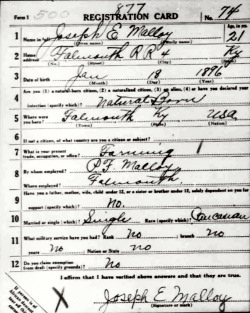 877
Form 1 509 REGISTRATION CARD No. 74
1 Name in full Joseph E Malloy Age, in yrs 21
2 Home address Falmouth R.R. Ky
3 Date of birth Jan 18 1896
4 Are you (1) a natural-born citizen, (2) a naturalized citizen, (3) an alien, (4) or have you declared your
intention (specify which)? Natural Born
5 Where were you born? Falmouth Ky USA
6 If not a citizen, of what country are you a citizen or subject?
7 What is your present trade, occupation, or office? Farming
8 By whom employed? P.F. Malloy
Where employed? Falmouth
9 Have you a father, mother, wife, child under 12, or a sister or brother under 12, solely dependent on you for
support (specify which)? No.
10 Married or single (which)? Single Race (specify which)? Caucasian
11 What military service have you had? Rank No branch no
years no Nation or State no
12 Do you claim exemption from draft (specify grounds)? No
I affirm that I have verified above answers and that they are true.
Joseph E. Malloy